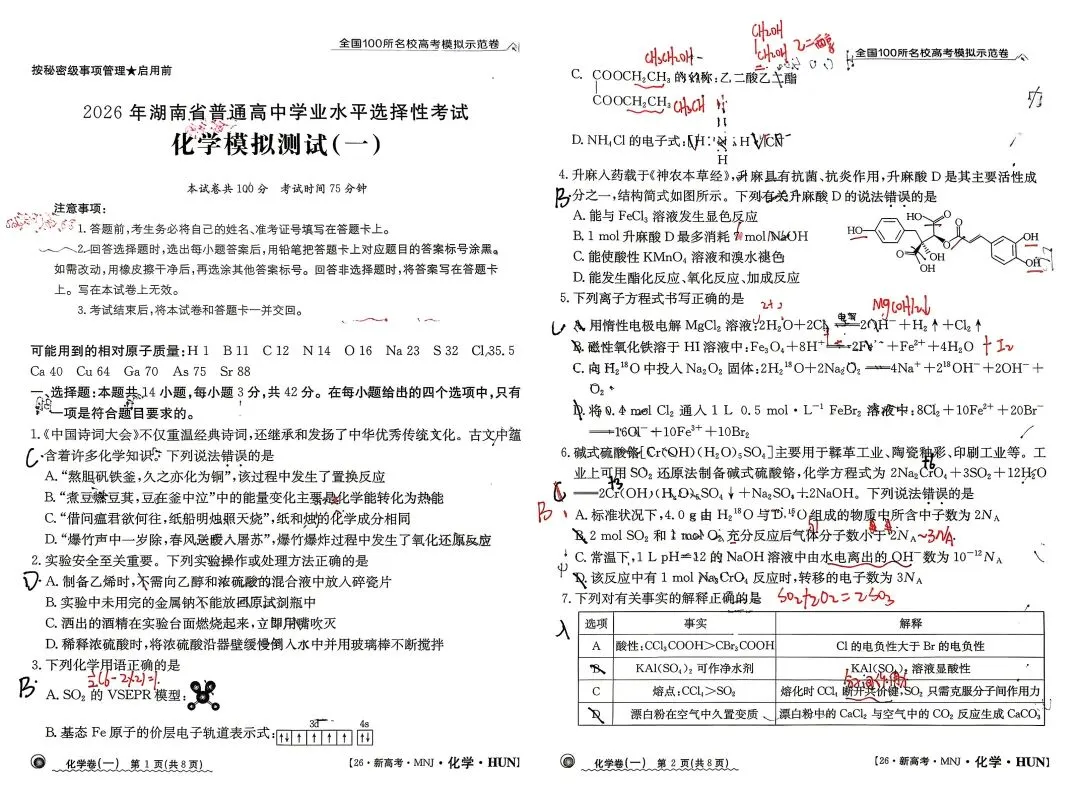 全国100所名校高考模拟示范卷
按秘密级事项管理★启用前
2026年湖南省普通高中学业水平选择性考试
化学模拟测试(一)
本试卷共100分 考试时间75分钟
注意事项:
1.答题前,考生务必将自己的姓名、准考证号填写在答题卡上。
2.回答选择题时,选出每小题答案后,用铅笔把答题卡上对应题目的答案标号涂黑。
如需改动,用橡皮擦干净后,再选涂其他答案标号。回答非选择题时,将答案写在答题卡
上。写在本试卷上无效。
3.考试结束后,将本试卷和答题卡一并交回。
可能用到的相对原子质量:H 1 B 11 C 12 N 14 O 16 Na 23 S 32 Cl 35.5
Ca 40 Cu 64 Ga 70 As 75 Sr 88
一、选择题:本题共14小题,每小题3分,共42分。在每小题给出的四个选项中,只有
一项是符合题目要求的。
1.《中国诗词大会》不仅重温经典诗词,还继承和发扬了中华优秀传统文化。古文中蕴
C 含着许多化学知识。下列说法错误的是
A.“熬胆矾铁釜,久之亦化为铜”,该过程中发生了置换反应
B.“煮豆燃豆萁,豆在釜中泣”中的能量变化主要是化学能转化为热能
C.“借问瘟君欲何往,纸船明烛照天烧”,纸和烛的化学成分相同
D.“爆竹声中一岁除,春风送暖入屠苏”,爆竹爆炸过程中发生了氧化还原反应
2.实验安全至关重要。下列实验操作或处理方法正确的是
D A.制备乙烯时,不需向乙醇和浓硫酸的混合液中放入碎瓷片
B.实验中未用完的金属钠不能放回原试剂瓶中
C.洒出的酒精在实验台面燃烧起来,立即用嘴吹灭
D.稀释浓硫酸时,将浓硫酸沿器壁缓慢倒入水中并用玻璃棒不断搅拌
3.下列化学用语正确的是
B A.SO₂的VSEPR模型:
B.基态Fe原子的价层电子轨道表示式: 3d 4s
化学卷(一) 第1页(共8页) 【26·新高考·MNJ·化学·HUN】
全国100所名校高考模拟示范卷
CH₂OH
CH₂OH 乙二醇
CH₃CH₂OH
C. COOCH₂CH₃ 的名称:乙二酸乙二酯
COOCH₂CH₃
D.NH₄Cl的电子式:
4.升麻入药载于《神农本草经》,升麻具有抗菌、抗炎作用,升麻酸D是其主要活性成
B 分之一,结构简式如图所示。下列有关升麻酸D的说法错误的是
A.能与FeCl₃溶液发生显色反应
B.1 mol升麻酸D最多消耗7 mol NaOH
C.能使酸性KMnO₄溶液和溴水褪色
D.能发生酯化反应、氧化反应、加成反应
HO OH O
5.下列离子方程式书写正确的是
Mg(OH)₂↓
A.用惰性电极电解MgCl₂溶液:2H₂O+2Cl⁻ 电解 2OH⁻+H₂↑+Cl₂↑
B.磁性氧化铁溶于HI溶液中:Fe₃O₄+8H⁺══2Fe³⁺+Fe²⁺+4H₂O +I₂
C.向H₂¹⁸O中投入Na₂O₂固体:2H₂¹⁸O+2Na₂O₂══4Na⁺+2¹⁸OH⁻+2OH⁻+
O₂
D.将0.4 mol Cl₂通入1 L 0.5 mol·L⁻¹ FeBr₂溶液中:8Cl₂+10Fe²⁺+20Br⁻
══16Cl⁻+10Fe³⁺+10Br₂
6.碱式硫酸铬[Cr(OH)(H₂O)₅SO₄]主要用于鞣革工业、陶瓷釉彩、印刷工业等。工
业上可用SO₂还原法制备碱式硫酸铬,化学方程式为2Na₂CrO₄+3SO₂+12H₂O
══2Cr(OH)(H₂O)₅SO₄↓+Na₂SO₄+2NaOH。下列说法错误的是
B A.标准状况下,4.0 g由H₂¹⁸O与D₂¹⁶O组成的物质中所含中子数为2Nᴀ
B.2 mol SO₂和1 mol O₂充分反应后气体分子数小于2Nᴀ ~3Nᴀ
C.常温下,1 L pH=12的NaOH溶液中由水电离出的OH⁻数为10⁻¹²Nᴀ
D.该反应中有1 mol Na₂CrO₄反应时,转移的电子数为3Nᴀ
7.下列对有关事实的解释正确的是
选项 事实 解释
A 酸性:CCl₃COOH>CBr₃COOH Cl的电负性大于Br的电负性
B KAl(SO₄)₂可作净水剂 KAl(SO₄)₂溶液显酸性
C 熔点:CCl₄>SO₂ 熔化时CCl₄断开共价键,SO₂只需克服分子间作用力
D 漂白粉在空气中久置变质 漂白粉中的CaCl₂与空气中的CO₂反应生成CaCO₃
化学卷(一) 第2页(共8页) 【26·新高考·MNJ·化学·HUN】